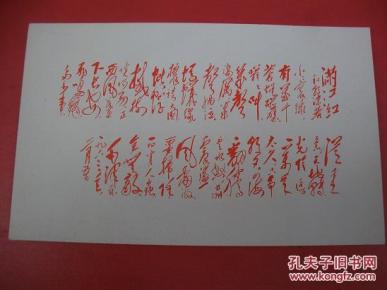 满江红
和郭沫若
小小寰球
有几个
苍蝇碰壁
嗡嗡叫
几声
凄厉几
声抽泣
蚂蚁缘
槐夸大国
蚍蜉
撼树
谈何易正
西风落叶
下长安
飞鸣镝
多少事
从来
急天地转
光阴迫
一万年
太久只争
朝夕四海
翻腾
云水怒五洲
震荡
风雷激
要扫除
一切害人虫
全无敌
毛泽东
一九六三年
二月五日
孔夫子旧书网